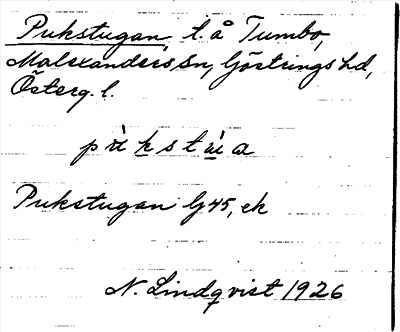 Pukstugan, t. å Tumbo,
Malexanders sn, Göstrings hd,
Österg. l.
Pukstugan Gj 45, ek
N. Lindqvist 1926